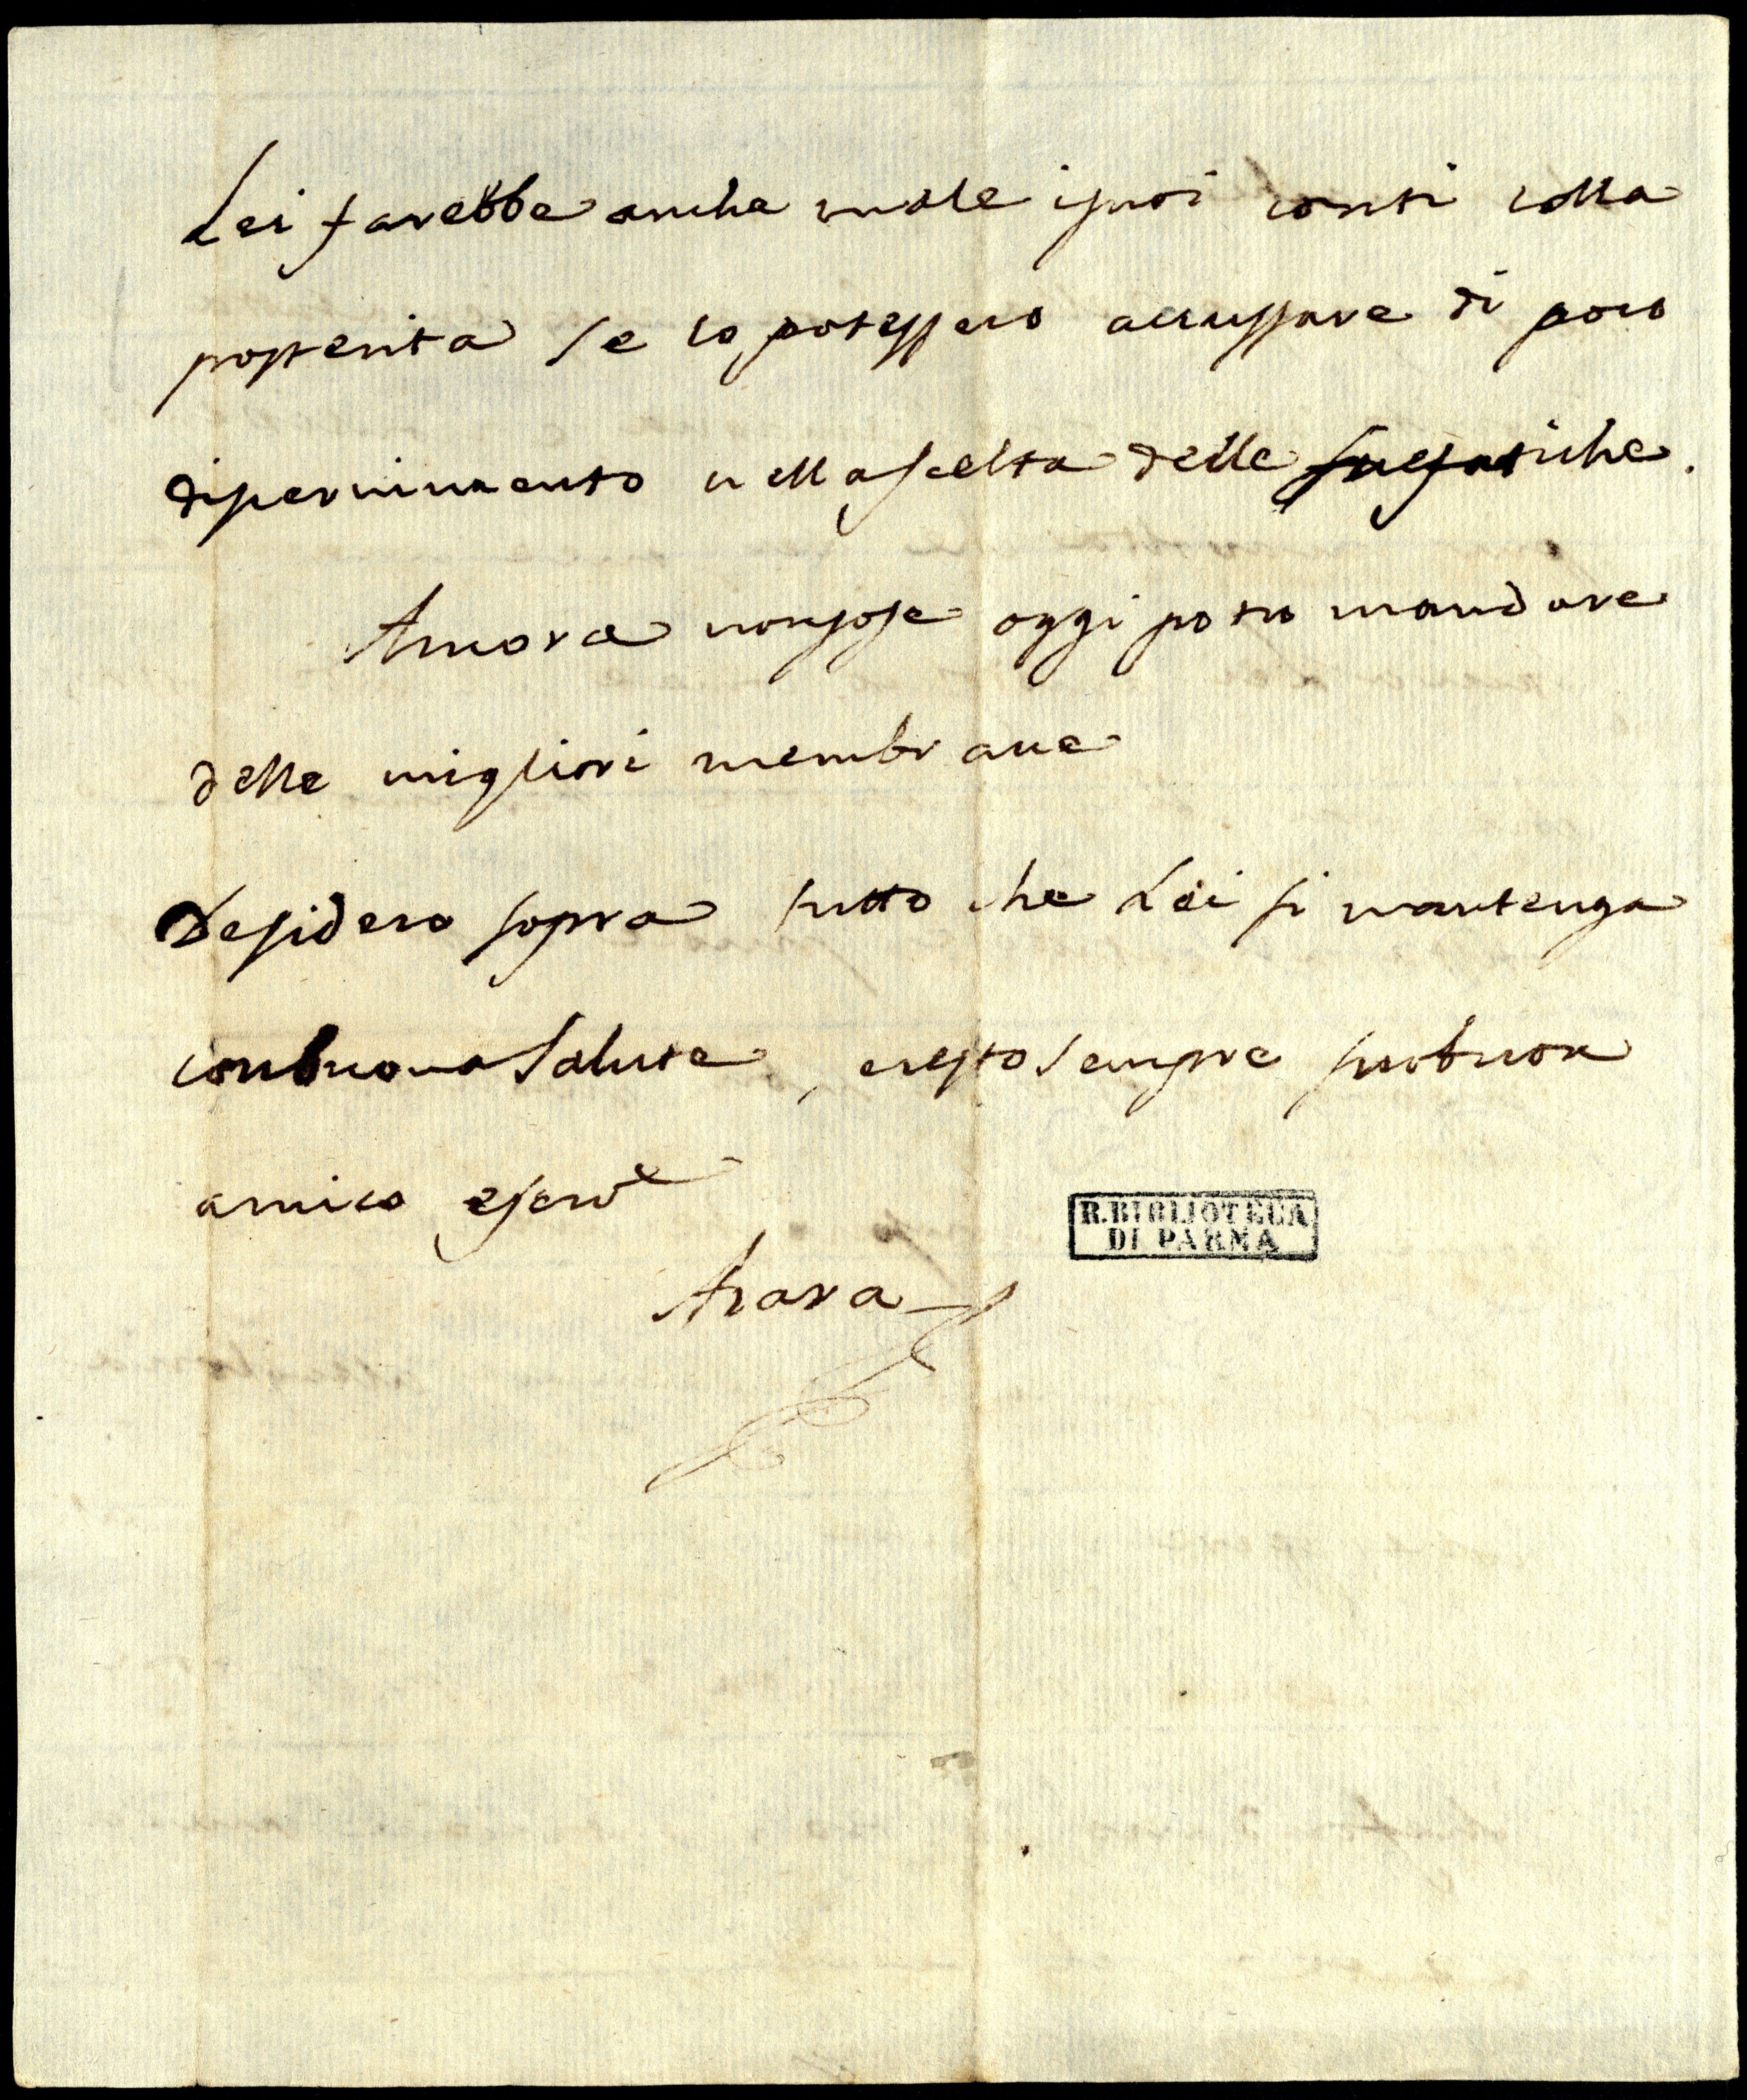 Lei farebbe anche male isuoi conti colla
posterita se lo potessero accussare di poco
discernimento nella scelta delle sue fatiche.
Ancora non so se oggi potro mandare
delle migliori membrane
Desidero sopra tutto che Lei si mantenga
con buona Salute, e resto sempre suo buon
amico e serv.e
Azara
R. BIBLIOTECA
DI PARMA